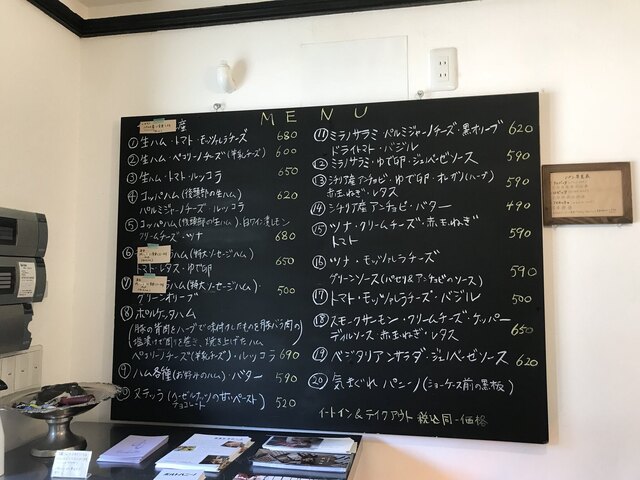 MENU
産
① 生ハム・トマト・モッツァレラチーズ 680
② 生ハム・ペコリーノチーズ(羊乳チーズ) 600
③ 生ハム・トマト・ルッコラ 650
④ コッパハム(後頭部の生ハム) 620
パルミジャーノチーズ・ルッコラ
⑤ コッパハム(後頭部の生ハム)・白ワイン煮レモン
クリームチーズ・ツナ 680
⑥ ラハム(特大ソーセージハム)
トマト・レタス・ゆで卵 650
⑦ ラハム(特大ソーセージハム)・
グリーンオリーブ 500
⑧ ポルケッタハム
(豚の肩肉をハーブで味付けしたものを豚バラ肉の
塩漬けで周りを巻き、焼き上げたハム
ペコリーノチーズ(羊乳チーズ)・ルッコラ 690
⑨ ハム各種(お好みのハム)・バター 590
⑩ ヌテッラ(ヘーゼルナッツの甘いペースト)
チョコレート 520
⑪ ミラノサラミ・パルミジャーノチーズ・黒オリーブ 620
ドライトマト・バジル
⑫ ミラノサラミ・ゆで卵・ジェノベーゼソース 590
⑬ シチリア産アンチョビ・ゆで卵・オレガノ(ハーブ) 590
赤玉ねぎ・レタス
⑭ シチリア産アンチョビ・バター 490
⑮ ツナ・クリームチーズ・赤玉ねぎ 590
トマト
⑯ ツナ・モッツァレラチーズ
グリーンソース(パセリ&アンチョビのソース) 590
⑰ トマト・モッツァレラチーズ・バジル 500
⑱ スモークサーモン・クリームチーズ・ケッパー
ディルソース・赤玉ねぎ・レタス 650
⑲ ベジタリアンサラダ・ジェノベーゼソース 620
⑳ 気まぐれ パニーノ(ショーケース前の黒板)
イートイン&テイクアウト 税込同一価格